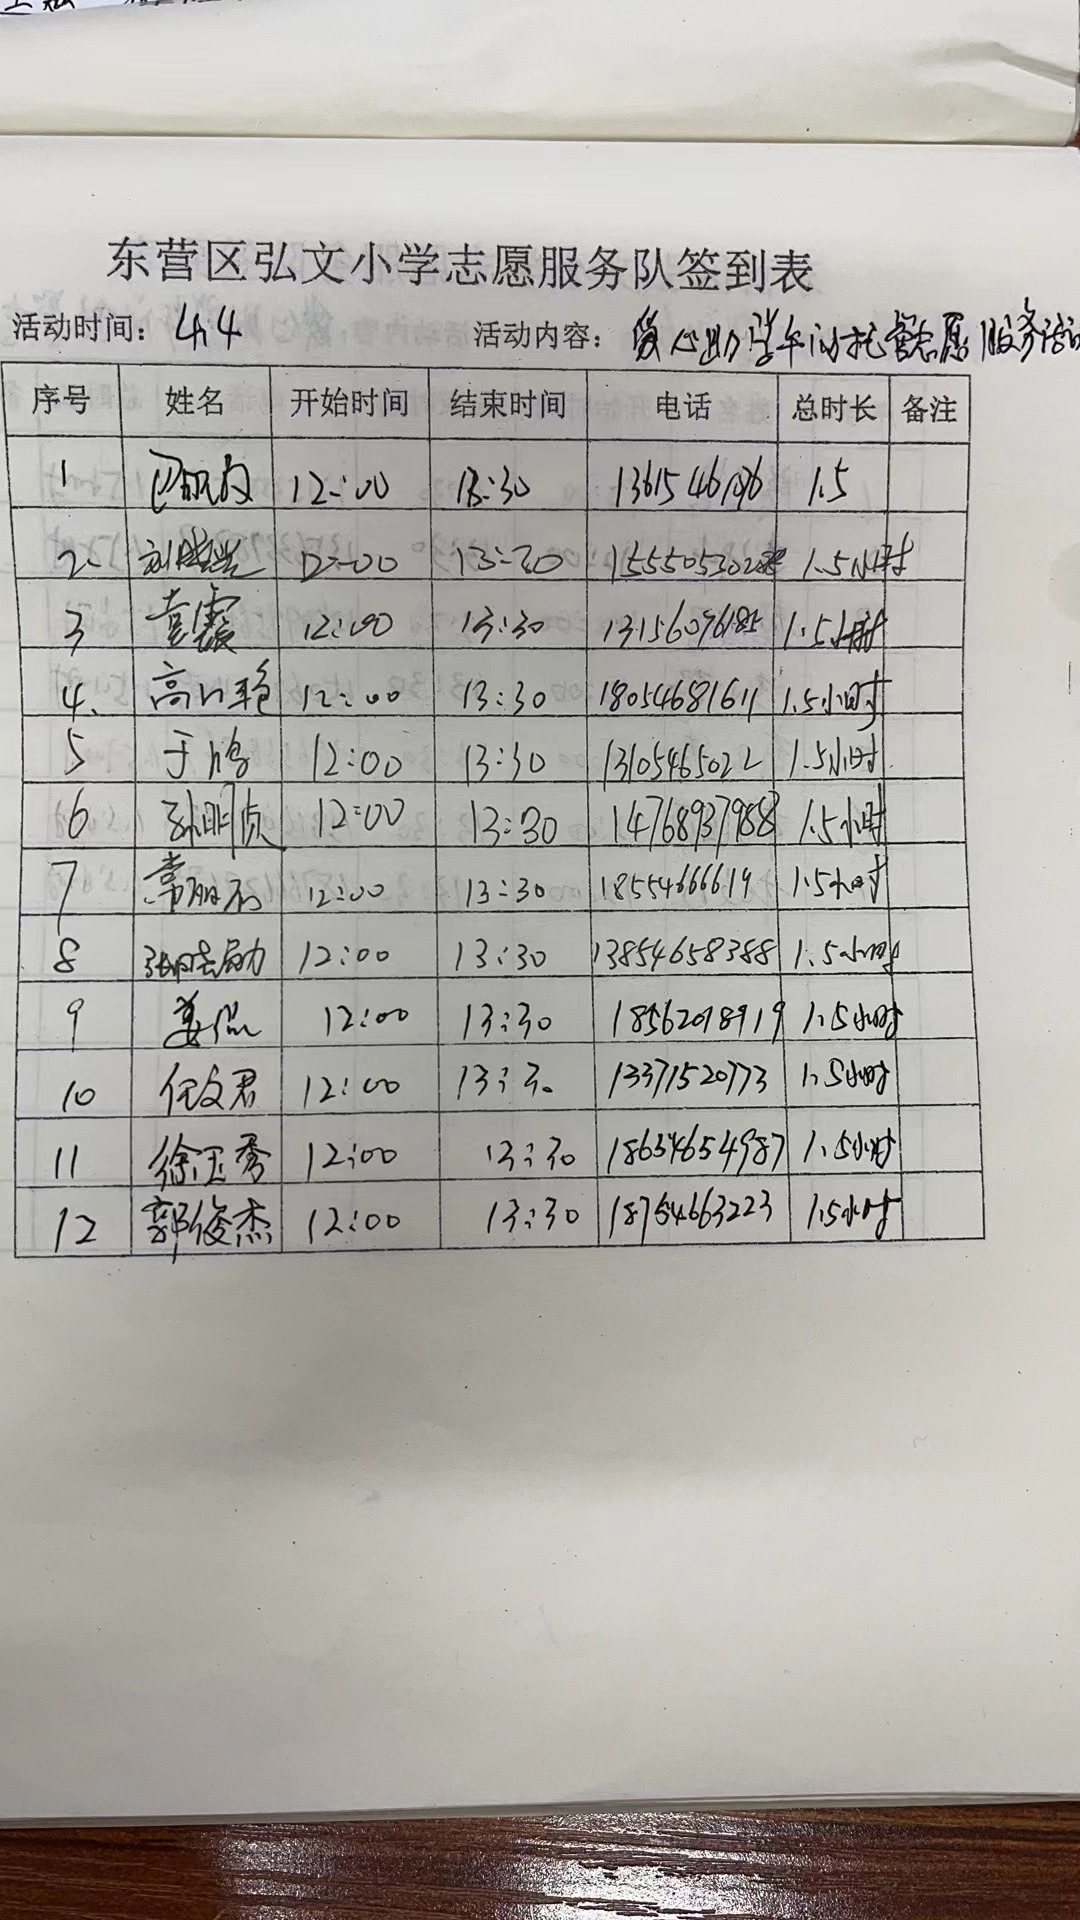 东营区弘文小学志愿服务队签到表
活动时间: 4.4 活动内容: 爱心助学午间托管志愿服务活动
序号 姓名 开始时间 结束时间 电话 总时长 备注
1 12:00 13:30 1.5
2 12:00 13:30 1.5小时
3 袁霞 12:00 13:30 13156096185 1.5小时
4、 高川艳 12:00 13:30 18054681611 1.5小时
5 于鸿 12:00 13:30 13105465022 1.5小时
6 孙明贞 12:00 13:30 14768937988 1.5小时
7 12:00 13:30 18554666619 1.5小时
8 12:00 13:30 13854658388 1.5小时
9 姜侃 12:00 13:30 18562018919 1.5小时
10 任文君 12:00 13:30 13371520773 1.5小时
11 徐玉秀 12:00 13:30 18634654987 1.5小时
12 郭俊杰 12:00 13:30 18764663223 1.5小时